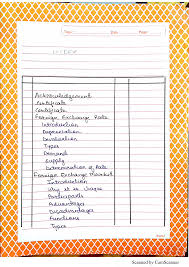 Date
Page
INDEX
Acknowledgement
Certificate
Certificate
Foreign Exchange Rate
Introduction
Depreciation
Devaluation
Types
Demand
Supply
Determination of Rate
Foreign Exchange Market
Introduction
Why it is
Participants
Advantages
Disadvantages
Functions
Types
Scanned by CamScanner